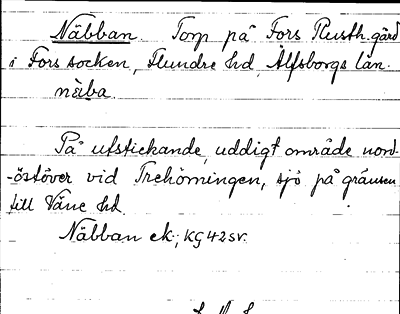 Näbban. Torp på Fors Rusth.gärd
i Fors socken, Flundre hd, Älfsborgs län.
näba.
På utstickande, uddigt område nord-
-östöver vid Trehörningen, sjö på gränsen
till Väne hd.
Näbban ek.; KG 42 sv.